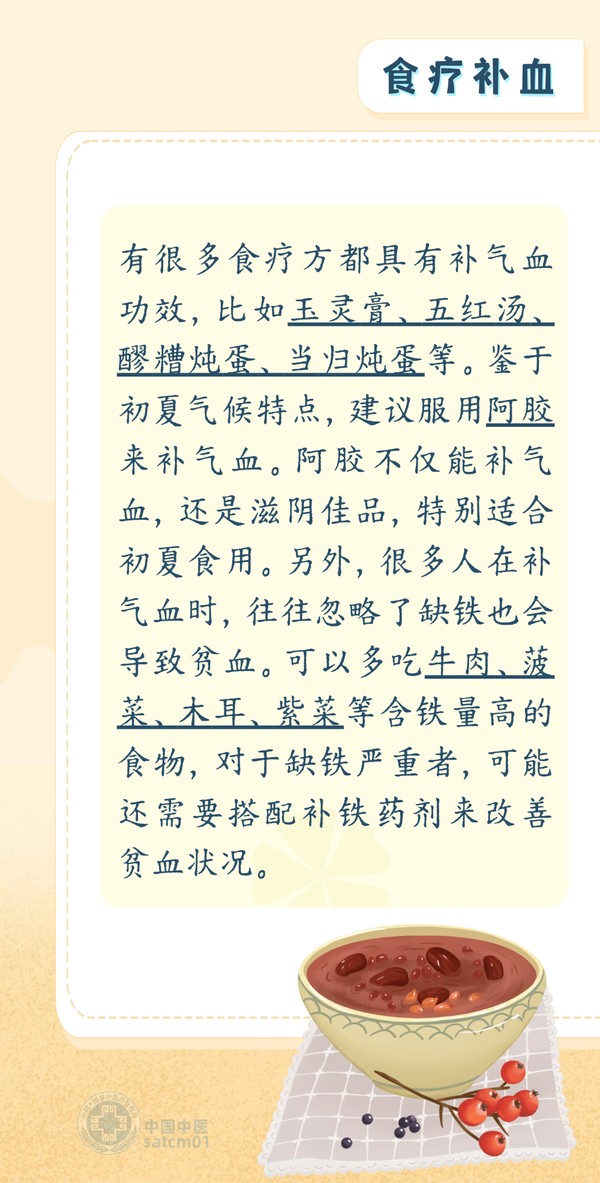 食疗补血
有很多食疗方都具有补气血
功效，比如玉灵膏、五红汤、
醪糟炖蛋、当归炖蛋等。鉴于
初夏气候特点，建议服用阿胶
来补气血。阿胶不仅能补气
血，还是滋阴佳品，特别适合
初夏食用。另外，很多人在补
气血时，往往忽略了缺铁也会
导致贫血。可以多吃牛肉、菠
菜、木耳、紫菜等含铁量高的
食物，对于缺铁严重者，可能
还需要搭配补铁药剂来改善
贫血状况。
中国中医
satcm01